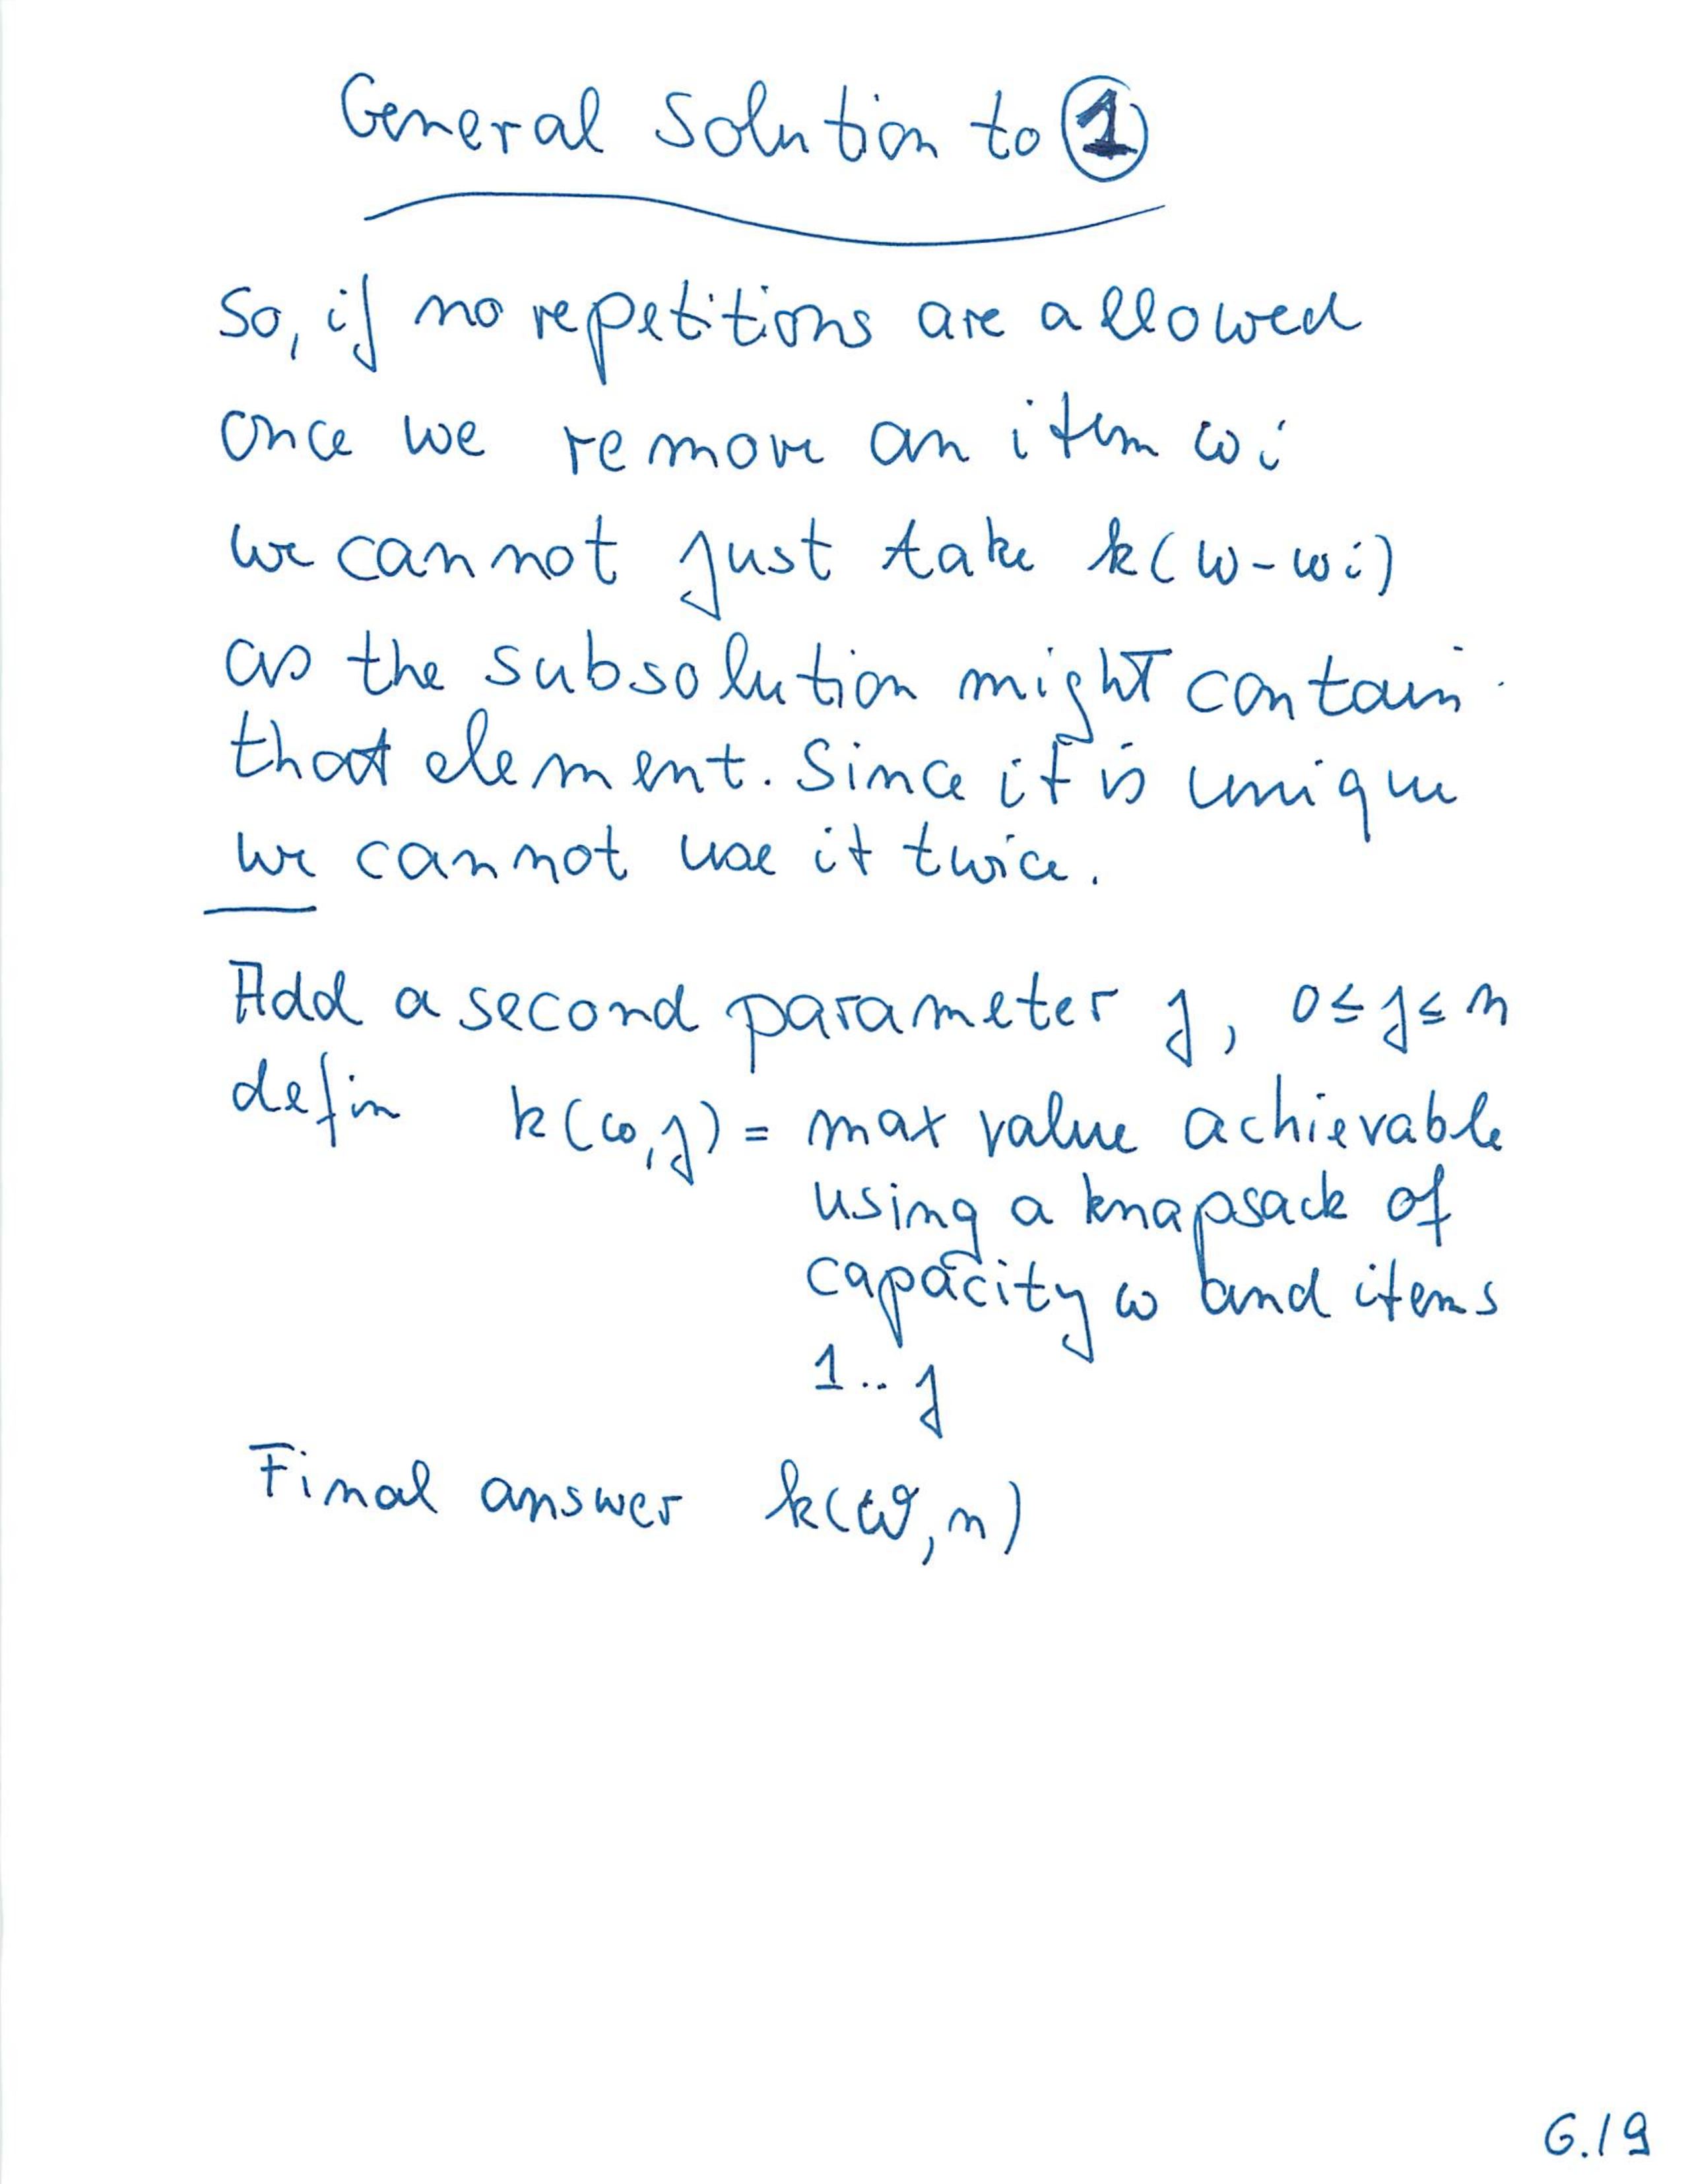 General Solution to 1
So, if no repetitions are allowed
once we remove an item wi
we cannot just take k(w-wi)
as the subsolution might contain
that element. Since it is unique
we cannot use it twice.
Add a second parameter j, 0≤j≤n
defin k(w,j) = max value achievable
using a knapsack of
capacity w and items
1..j
Final answer k(W,n)
6.19